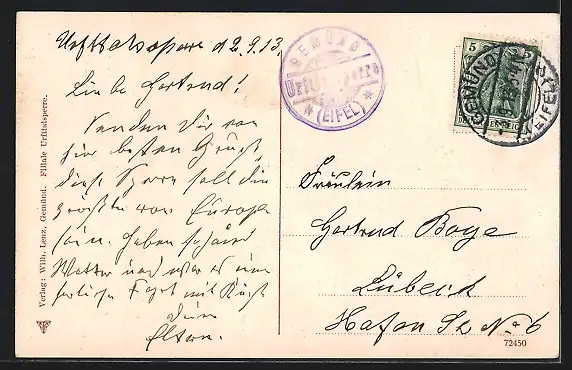 Urfttalsperre d 2.9.13.
Liebe Gertrud!
Senden Dir von
hier besten Gruß,
diese Sperre soll die
größte von Europa
sein. Haben schönes
Wetter und war es eine
herrliche Fahrt mit
Deine
Eltern.
GEMÜND
Urfttalsperre
(EIFEL)
5
GEMÜND
(EIFEL)
Fräulein
Gertrud Boye
Lübeck
Hafen Str No 6
72450
Verlag: Wilh. Lenz, Gemünd. Filiale Urfttalsperre.